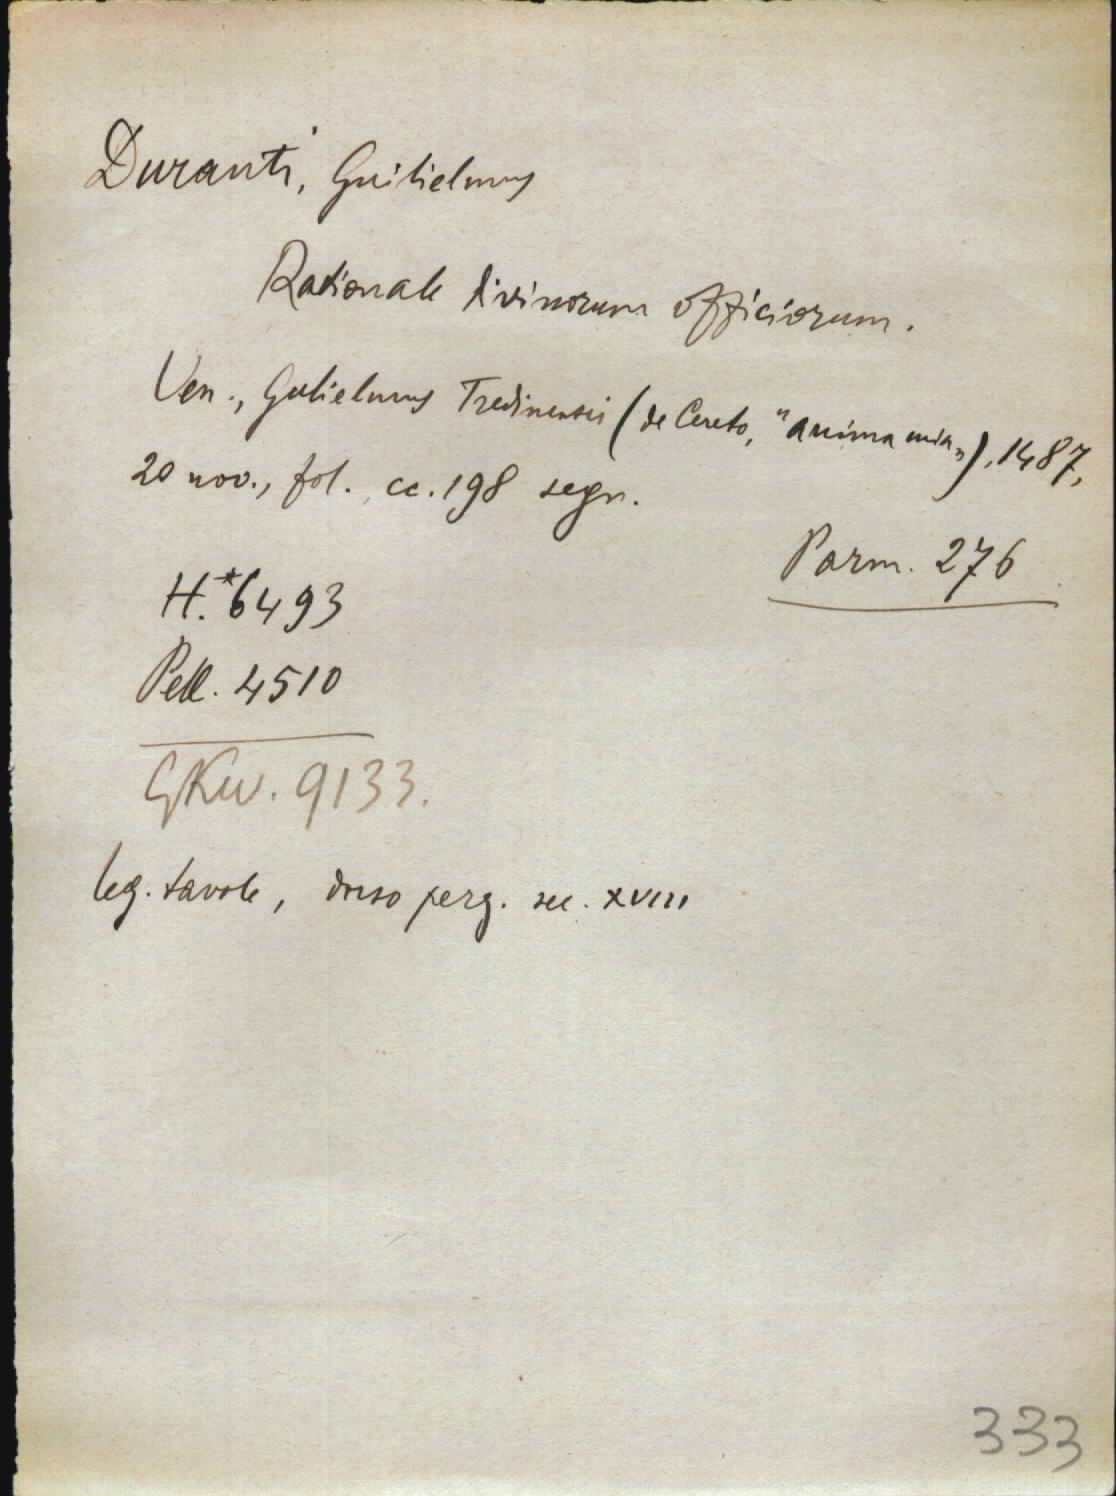 Duranti, Guilielmus
Rationale divinorum officiorum.
Ven., Gulielmus Tredinensis (de Cereto, "anima mia„), 1487,
20 nov., fol. cc. 198 segn.
Parm. 276
H.*6493
Pell. 4510
GKW. 9133.
leg. tavole, dorso perg. sec. XVIII
333